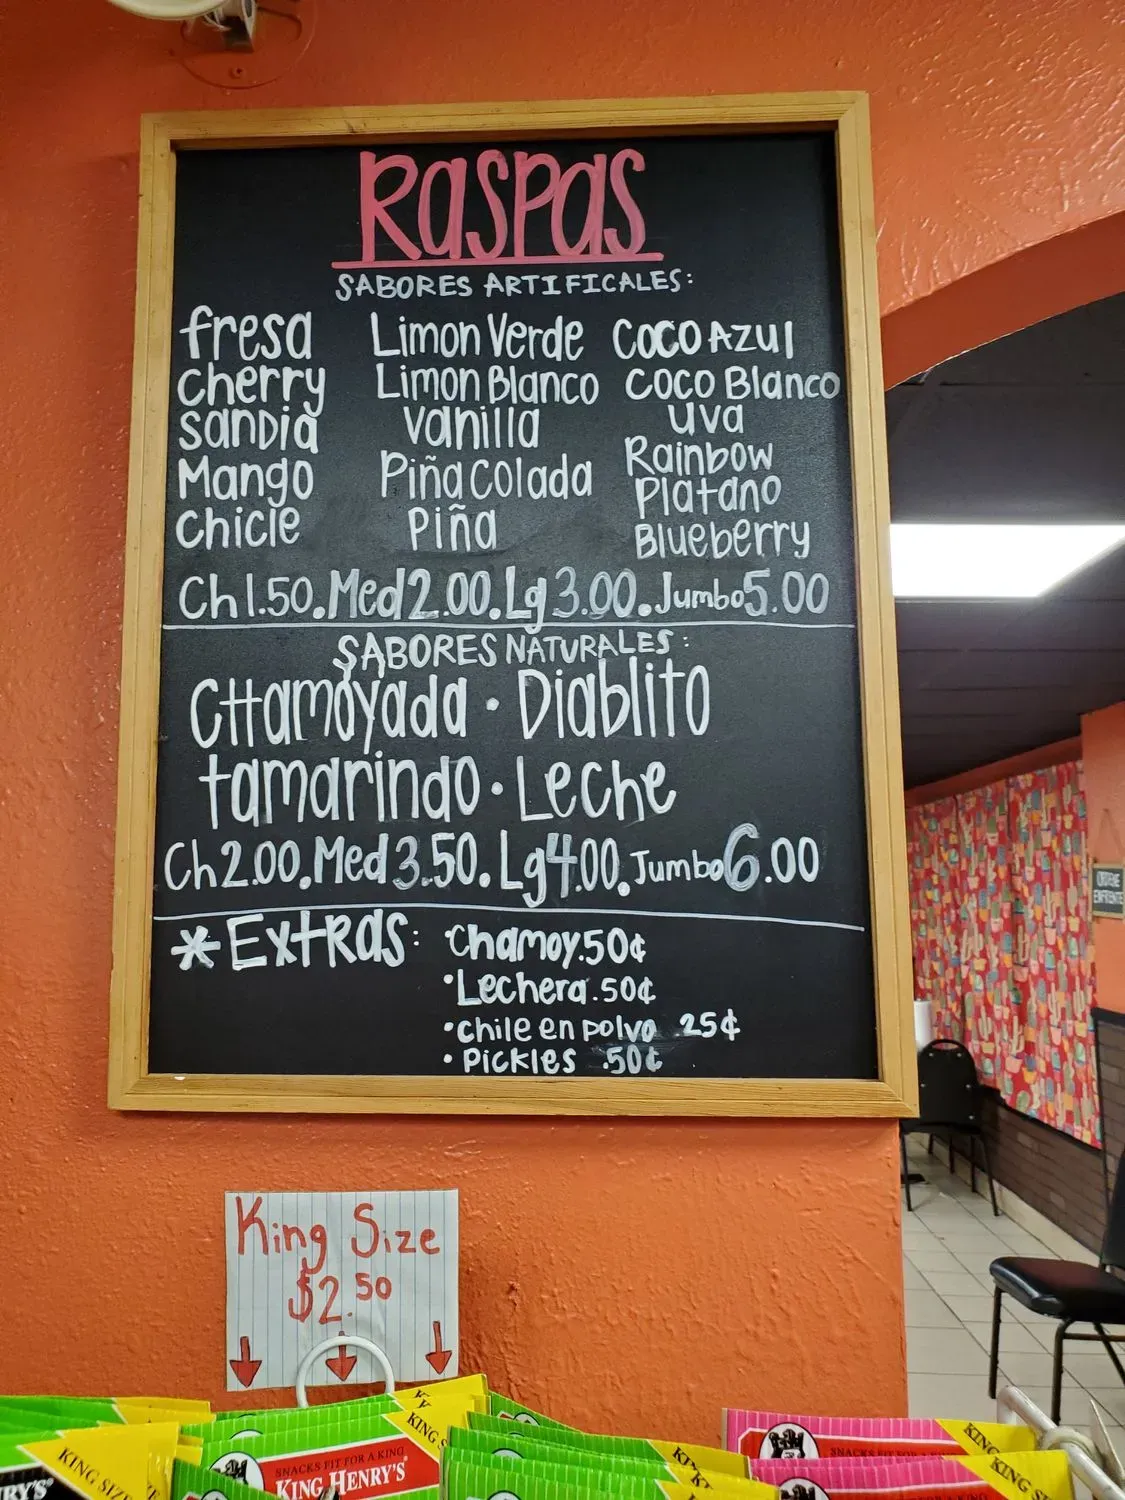 RASPAS
SABORES ARTIFICALES:
fresa Limon Verde Coco Azul
Cherry Limon Blanco Coco Blanco
Sandia Vanilla Uva
Mango Piña Colada Rainbow
Chicle Piña Platano
Blueberry
Ch 1.50. Med 2.00. Lg 3.00. Jumbo 5.00
SABORES NATURALES:
CHamoyada · Diablito
tamarindo · Leche
Ch 2.00. Med 3.50. Lg 4.00. Jumbo 6.00
* Extras: Chamoy .50¢
• Lechera .50¢
• chile en polvo 25¢
• Pickles .50¢
King Size
$2.50
KING SIZE
SNACKS FIT FOR A KING
KING HENRY'S
KING S
SNACKS FIT FOR A KING
KING
KING S